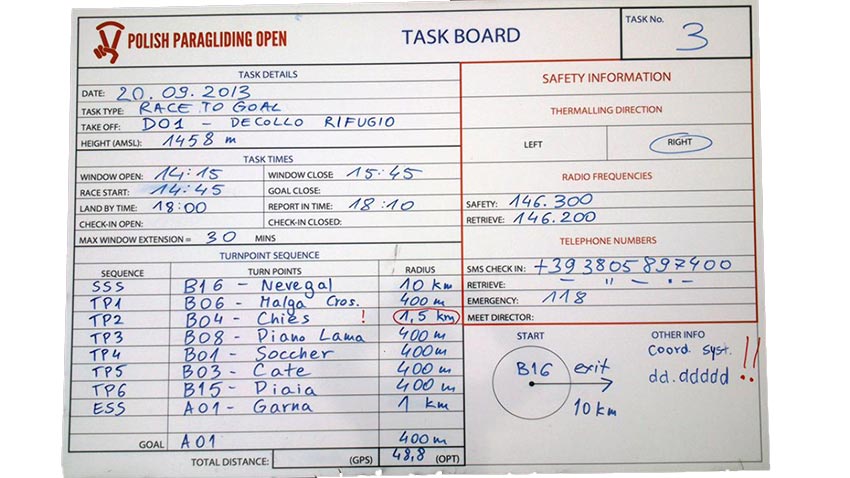 POLISH PARAGLIDING OPEN
TASK BOARD
TASK No. 3
TASK DETAILS
DATE: 20.09.2013
TASK TYPE: RACE TO GOAL
TAKE OFF: D01 - DECOLLO RIFUGIO
HEIGHT (AMSL): 1458 m
TASK TIMES
WINDOW OPEN: 14:15 WINDOW CLOSE: 15:45
RACE START: 14:45 GOAL CLOSE:
LAND BY TIME: 18:00 REPORT IN TIME: 18:10
CHECK-IN OPEN: CHECK-IN CLOSED:
MAX WINDOW EXTENSION = 30 MINS
TURNPOINT SEQUENCE
SEQUENCE TURN POINTS RADIUS
SSS B16 - Nevegal 10 km
TP1 B06 - Malga Cros. 400 m
TP2 B04 - Chies ! 1,5 km
TP3 B08 - Piano Lama 400 m
TP4 B01 - Soccher 400m
TP5 B03 - Cate 400 m
TP6 B15 - Piaia 400 m
ESS A01 - Garna 1 km
GOAL A01 400m
TOTAL DISTANCE: (GPS) 48,8 (OPT)
SAFETY INFORMATION
THERMALLING DIRECTION
LEFT RIGHT
RADIO FREQUENCIES
SAFETY: 146.300
RETRIEVE: 146.200
TELEPHONE NUMBERS
SMS CHECK IN: +393805897400
RETRIEVE: - " - . -
EMERGENCY: 118
MEET DIRECTOR:
START
B16 exit
10 km
OTHER INFO
Coord syst. !!
dd.ddddd